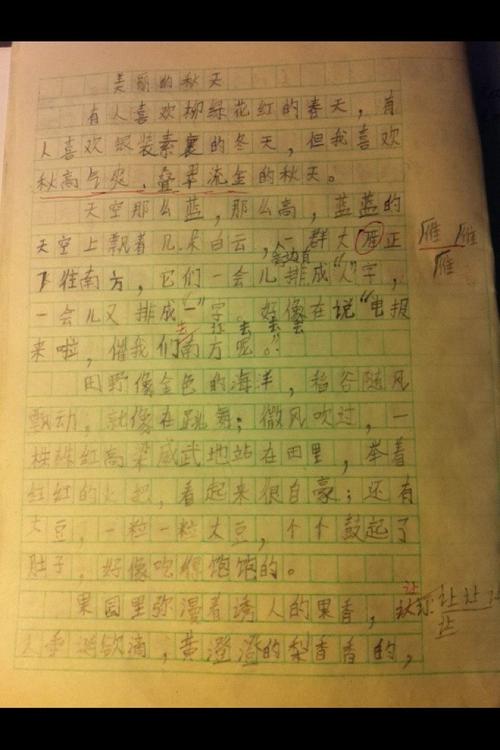 美丽的秋天
有人喜欢柳绿花红的春天，有
人喜欢银装素裹的冬天，但我喜欢
秋高气爽，叠翠流金的秋天。
天空那么蓝，那么高，蓝蓝的
天空上飘着几朵白云，一群大雁正
雁 雁
雁
往南方，它们一会儿排成“人”字，
一会儿又排成“一”字。好像在说“电报
去 去 去
来啦，催我们南方呢。”
田野像金色的海洋，稻谷随风
飘动，就像在跳舞；微风吹过，一
株株红高粱威武地站在田里，举着
红红的火把，看起来很自豪；还有
大豆，一粒一粒大豆，个个鼓起了
肚子，好像吃得饱饱的。
果园里弥漫着诱人的果香，
让
让 让 让
让
人垂涎欲滴，黄澄澄的梨香香的，